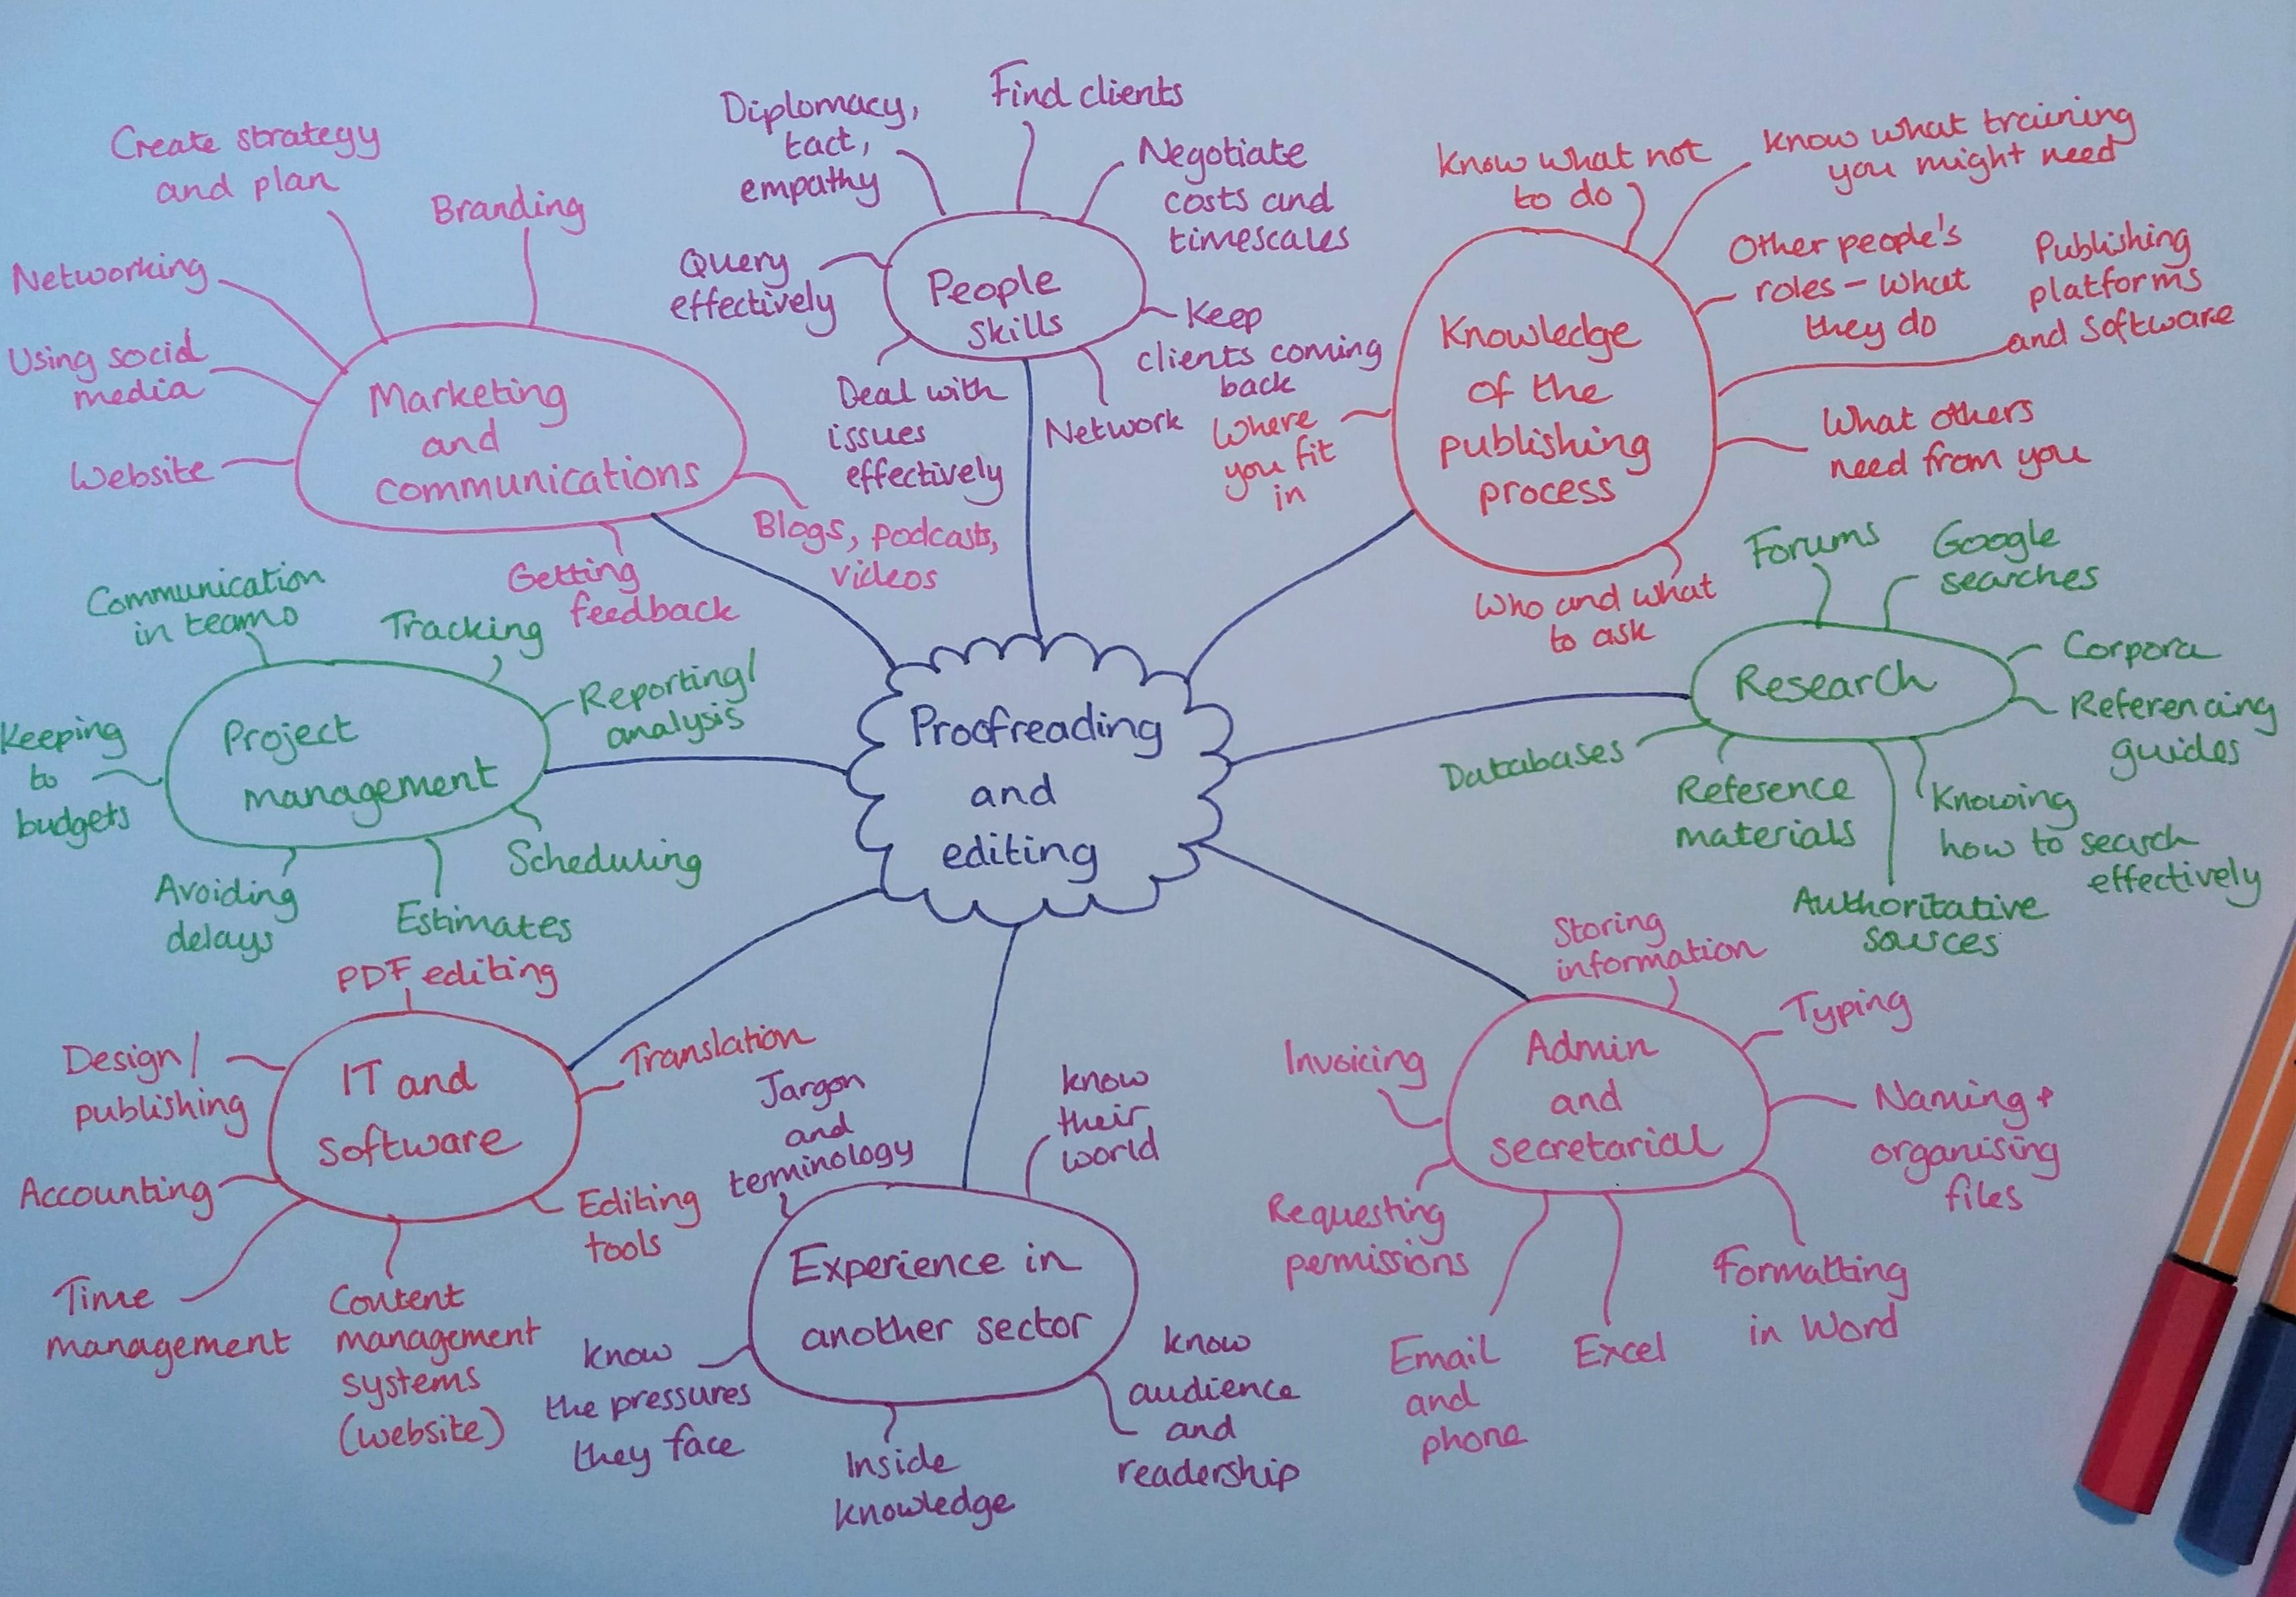 Proofreading
and
editing
Marketing
and
communications
Create strategy
and plan
Branding
Networking
Using social
media
Website
Getting
feedback
Blogs, podcasts,
videos
People
skills
Diplomacy,
tact,
empathy
Find clients
Negotiate
costs and
timescales
Query
effectively
Keep
clients coming
back
Deal with
issues
effectively
Network
Knowledge
of the
publishing
process
Know what not
to do
Know what training
you might need
Other people's
roles - what
they do
Publishing
platforms
and software
Where
you fit
in
What others
need from you
Who and what
to ask
Research
Forums
Google
searches
Corpora
Referencing
guides
Databases
Reference
materials
Knowing
how to search
effectively
Authoritative
sources
Admin
and
secretarial
Storing
information
Typing
Invoicing
Naming +
organising
files
Requesting
permissions
Email
and
phone
Excel
Formatting
in Word
Experience in
another sector
Jargon
and
terminology
Know
their
world
Know
the pressures
they face
Inside
knowledge
Know
audience
and
readership
IT and
software
PDF editing
Design/
publishing
Translation
Accounting
Editing
tools
Time
management
Content
management
systems
(website)
Project
management
Communication
in teams
Tracking
Reporting/
analysis
Keeping
to
budgets
Scheduling
Avoiding
delays
Estimates